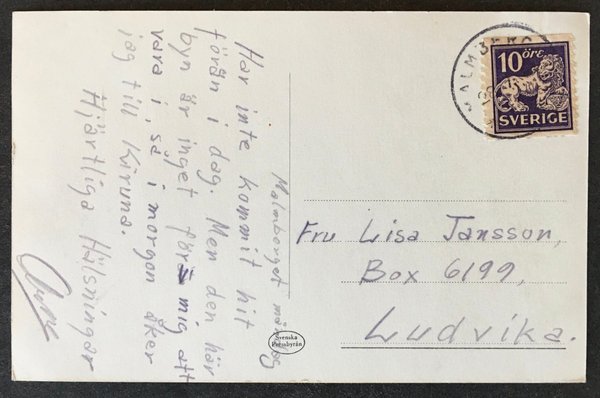 Malmberget måndag
Har inte kommit hit
förän i dag. Men den här
byn är inget för mig att
vara i, så i morgon åker
jag till Kiruna.
Hjärtliga Hälsningar
Svenska
Pressbyrån
MALMBERG
10 öre
SVERIGE
Fru Lisa Jansson,
Box 6199,
Ludvika.